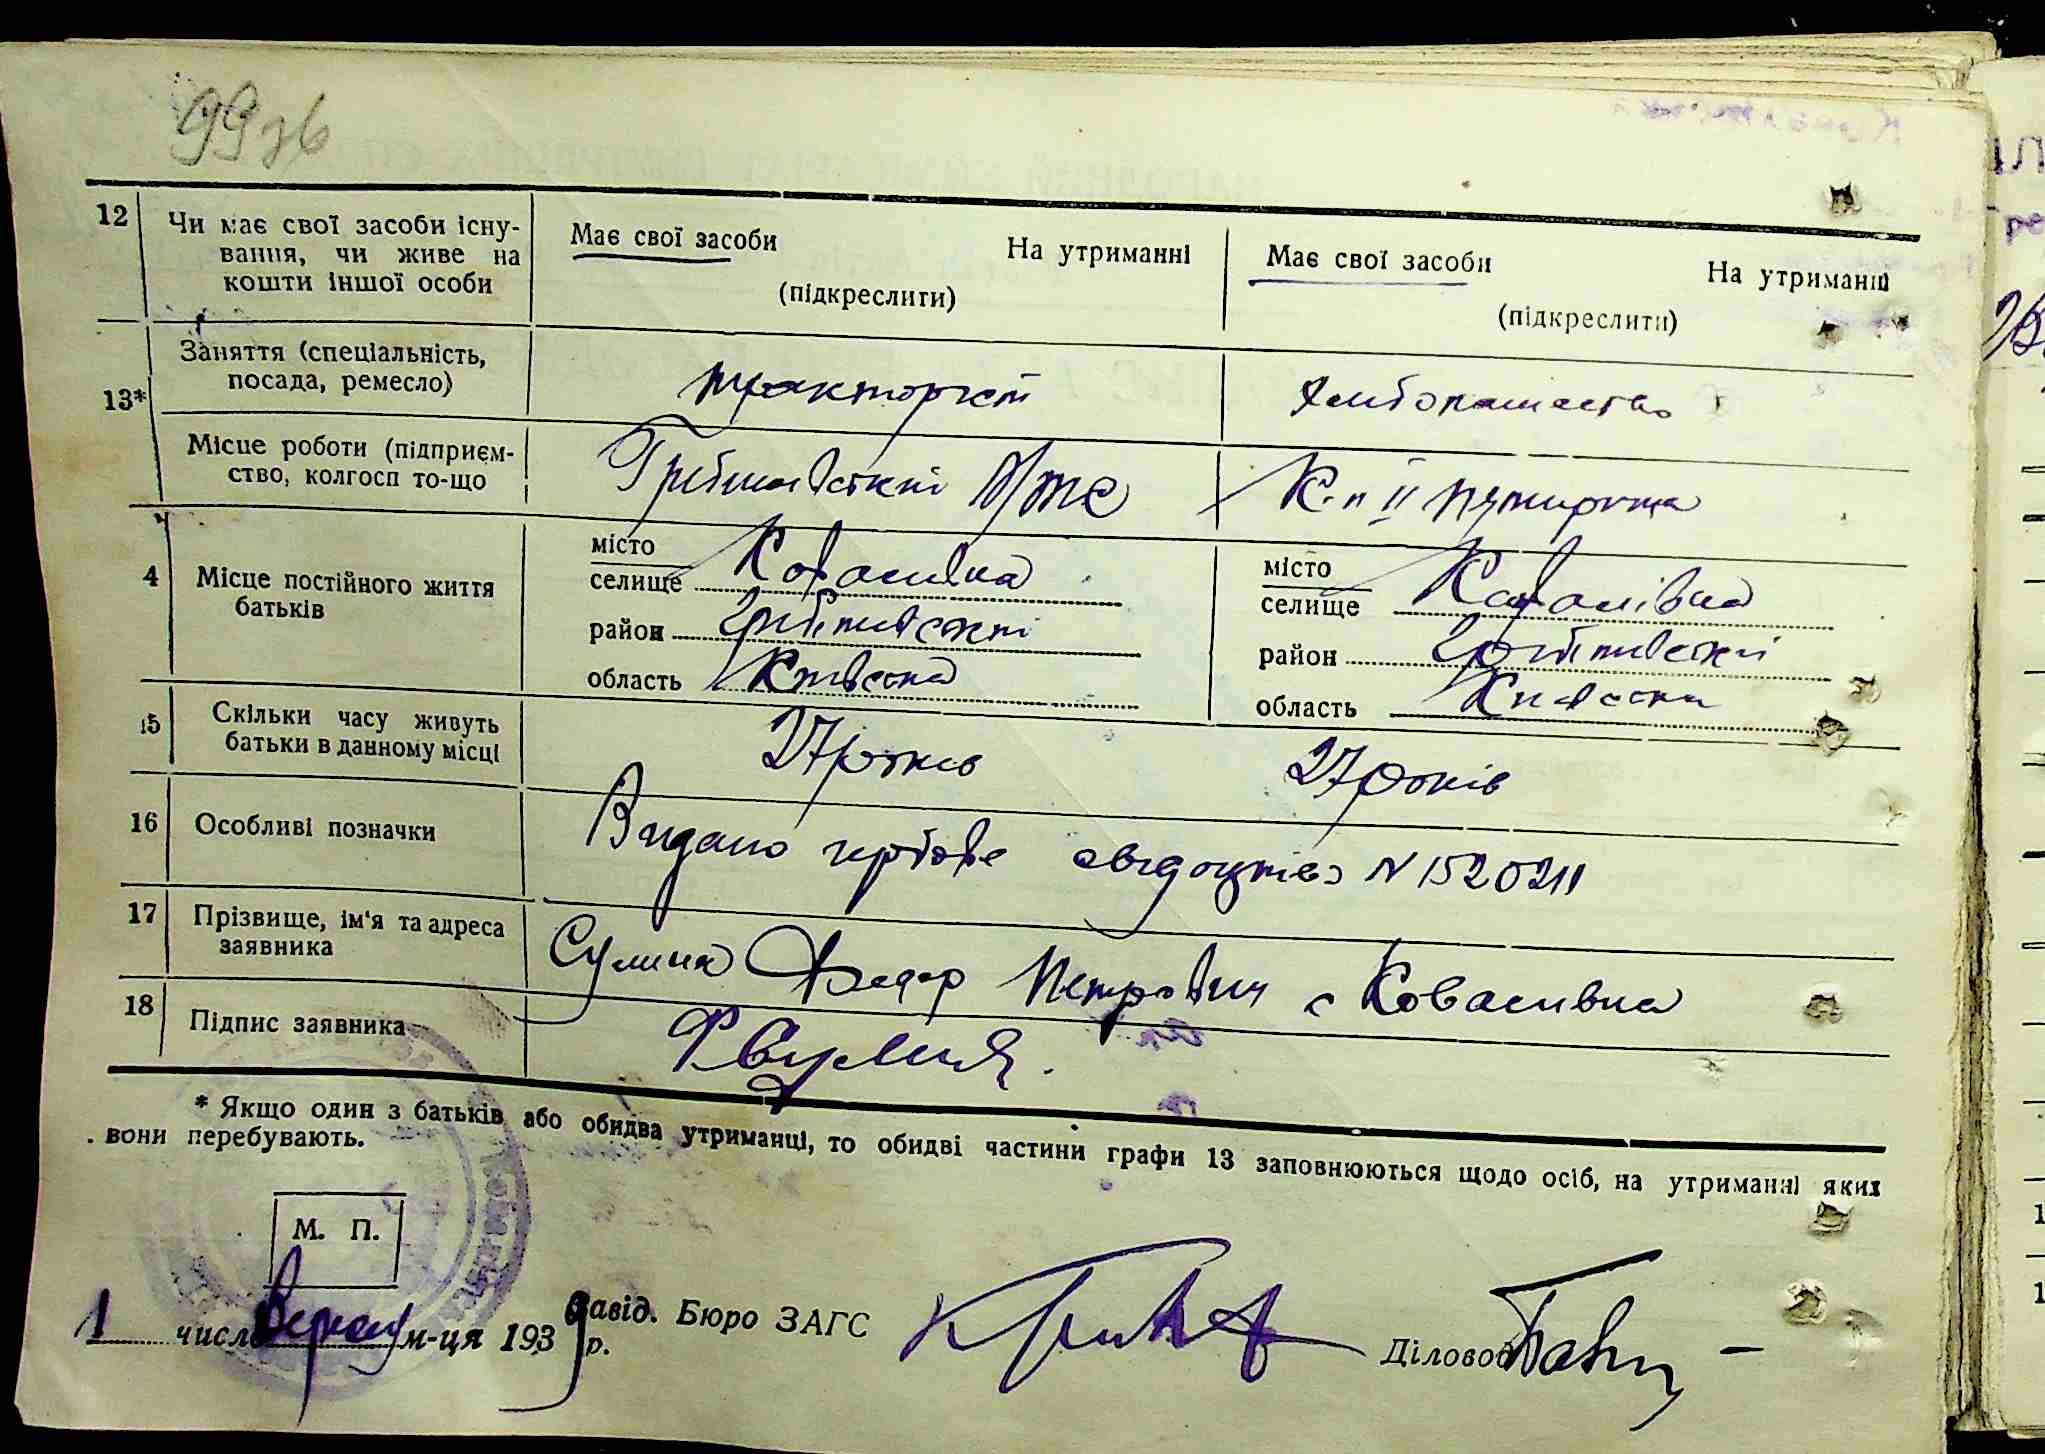 99зв
12 Чи має свої засоби існу-
вання, чи живе на
кошти іншої особи
Має свої засоби На утриманні
(підкреслити)
Має свої засоби На утриманні
(підкреслити)
13*
Заняття (спеціальність,
посада, ремесло)
тракторист
хлібопашество
Місце роботи (підприєм-
ство, колгосп то-що
Гребінківський МТС
К-п ІІ п'ятирічка
4 Місце постійного життя
батьків
місто
селище Ковалівка
район Гребінківський
область Київська
місто
селище Ковалівка
район Гребінківський
область Київська
15 Скільки часу живуть
батьки в данному місці
27 років
27 років
16 Особливі позначки
Видано гербове свідоцтво N 1520211
17 Прізвище, ім'я та адреса
заявника
Сулима Федор Петрович с Коваливка
18 Підпис заявника
* Якщо один з батьків або обидва утриманці, то обидві частини графи 13 заповнюються щодо осіб, на утриманні яких
вони перебувають.
М. П.
1 числа Вересня м-ця 1939 р.
Завід. Бюро ЗАГС
Діловод